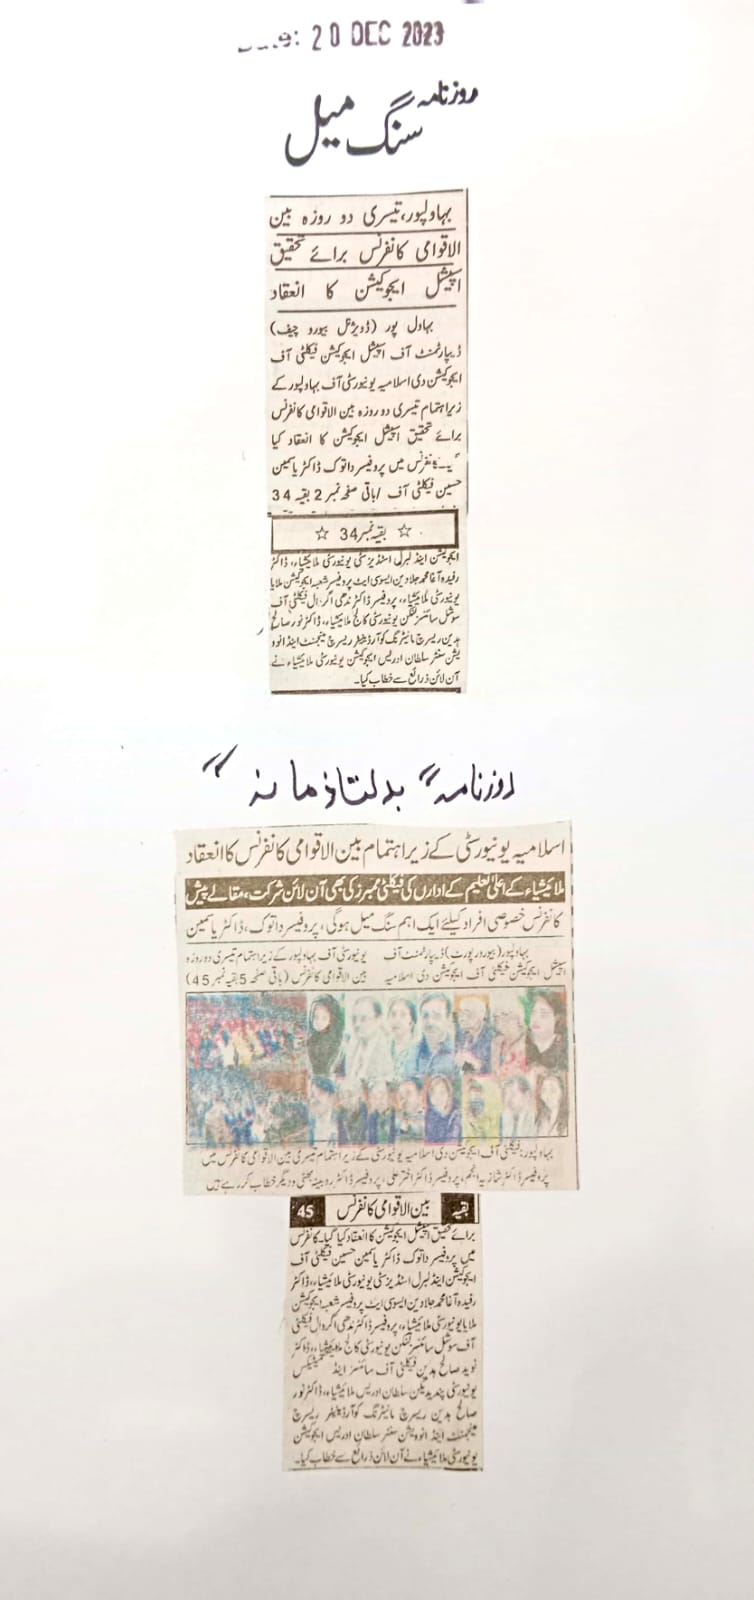 Date: 20 DEC 2023
روزنامہ
سنگ میل
بہاولپور، تیسری دو روزہ بین
الاقوامی کانفرنس برائے تحقیق
اسپیشل ایجوکیشن کا انعقاد
بہاول پور (ڈویژنل بیورو چیف)
ڈیپارٹمنٹ آف اسپیشل ایجوکیشن فیکلٹی آف
ایجوکیشن دی اسلامیہ یونیورسٹی آف بہاولپور کے
زیراہتمام تیسری دو روزہ بین الاقوامی کانفرنس
برائے تحقیق اسپیشل ایجوکیشن کا انعقاد کیا
گیا۔ کانفرنس میں پروفیسر داتوک ڈاکٹر یاسمین
حسین فیکلٹی آف /باقی صفحہ نمبر 2 بقیہ 34
☆ بقیہ نمبر 34 ☆
ایجوکیشن اینڈ لبرل اسٹڈیز سٹی یونیورسٹی ملائیشیاء، ڈاکٹر
رفیدہ آغا محمد جلادین ایسوسی ایٹ پروفیسر شعبہ ایجوکیشن ملایا
یونیورسٹی ملائیشیاء، پروفیسر ڈاکٹر ندھی اگروال فیکلٹی آف
سوشل سائنسز لنکن یونیورسٹی کالج ملائیشیاء، ڈاکٹر نور صالح
بدین ریسرچ مانیٹرنگ کوآرڈینیٹر ریسرچ مینجمنٹ اینڈ انوو
یشن سنٹر سلطان ادریس ایجوکیشن یونیورسٹی ملائیشیاء نے
آن لائن ذرائع سے خطاب کیا۔
روزنامہ "بدلتا زمانہ"
اسلامیہ یونیورسٹی کے زیر اہتمام بین الاقوامی کانفرنس کا انعقاد
ملائیشیاء کے اعلیٰ تعلیم کے اداروں کی فیکلٹی ممبرز کی بھی آن لائن شرکت، مقالے پیش
کانفرنس خصوصی افراد کیلئے ایک اہم سنگ میل ہوگی، پروفیسر داتوک، ڈاکٹر یاسمین
بہاولپور (بیورو رپورٹ) ڈیپارٹمنٹ آف
اسپیشل ایجوکیشن فیکلٹی آف ایجوکیشن دی اسلامیہ
یونیورسٹی آف بہاولپور کے زیراہتمام تیسری دو روزہ
بین الاقوامی کانفرنس (باقی صفحہ 5 بقیہ نمبر 45)
بہاولپور: فیکلٹی آف ایجوکیشن دی اسلامیہ یونیورسٹی کے زیر اہتمام تیسری بین الاقوامی کانفرنس میں
پروفیسر ڈاکٹر شازیہ انجم، پروفیسر ڈاکٹر اختر علی، پروفیسر ڈاکٹر روبینہ بھٹی و دیگر خطاب کر رہے ہیں
بقیہ بین الاقوامی کانفرنس 45
برائے تحقیق اسپیشل ایجوکیشن کا انعقاد کیا گیا۔ کانفرنس
میں پروفیسر داتوک ڈاکٹر یاسمین حسین فیکلٹی آف
ایجوکیشن اینڈ لبرل اسٹڈیز سٹی یونیورسٹی ملائیشیاء، ڈاکٹر
رفیدہ آغا محمد جلادین ایسوسی ایٹ پروفیسر شعبہ ایجوکیشن
ملایا یونیورسٹی ملائیشیاء، پروفیسر ڈاکٹر ندھی اگروال فیکلٹی
آف سوشل سائنسز لنکن یونیورسٹی کالج ملائیشیاء، ڈاکٹر
نوید صالح بدین فیکلٹی آف سائنسز اینڈ میتھمیٹکس
یونیورسٹی پندیدیکن سلطان ادریس ملائیشیاء، ڈاکٹر نور
صالح بدین ریسرچ مانیٹرنگ کوآرڈینیٹر ریسرچ
مینجمنٹ اینڈ انوویشن سنٹر سلطان ادریس ایجوکیشن
یونیورسٹی ملائیشیاء نے آن لائن ذرائع سے خطاب کیا۔